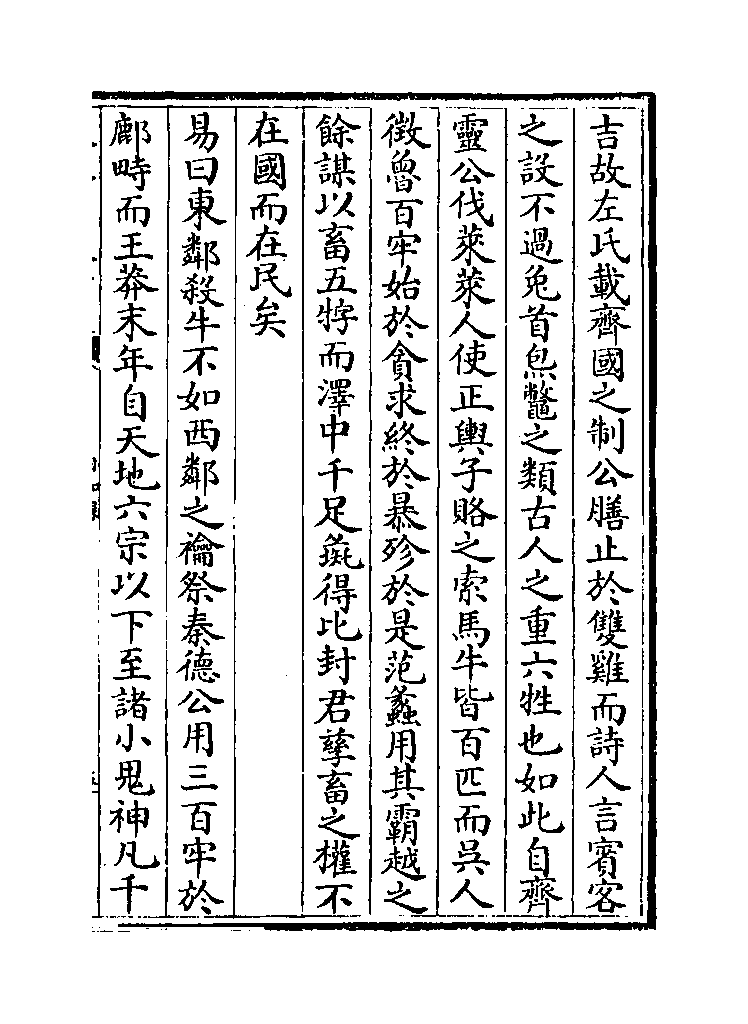 吉故左氏載齊國之制公膳止於雙雞而詩人言賓客
之設不過兔首炰鼈之類古人之重六牲也如此自齊
靈公伐萊萊人使正輿子賂之索馬牛皆百匹而吳人
徵魯百牢始於貪求終於暴殄於是范蠡用其霸越之
餘謀以畜五牸而澤中千足彘得比封君孳畜之權不
在國而在民矣
易曰東鄰殺牛不如西鄰之禴祭秦德公用三百牢於
鄜畤而王莽末年自天地六宗以下至諸小鬼神凡千